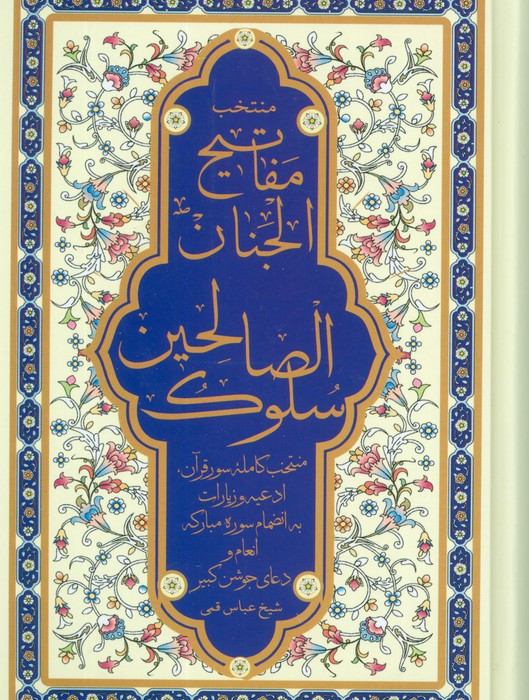 منتخب
مفاتیح
الجنان
الصالحین
سلوک
منتخب کاملهٔ سور قرآن،
ادعیه و زیارات
به انضمام سوره مبارکه
انعام و
دعای جوشن کبیر
شیخ عباس قمی